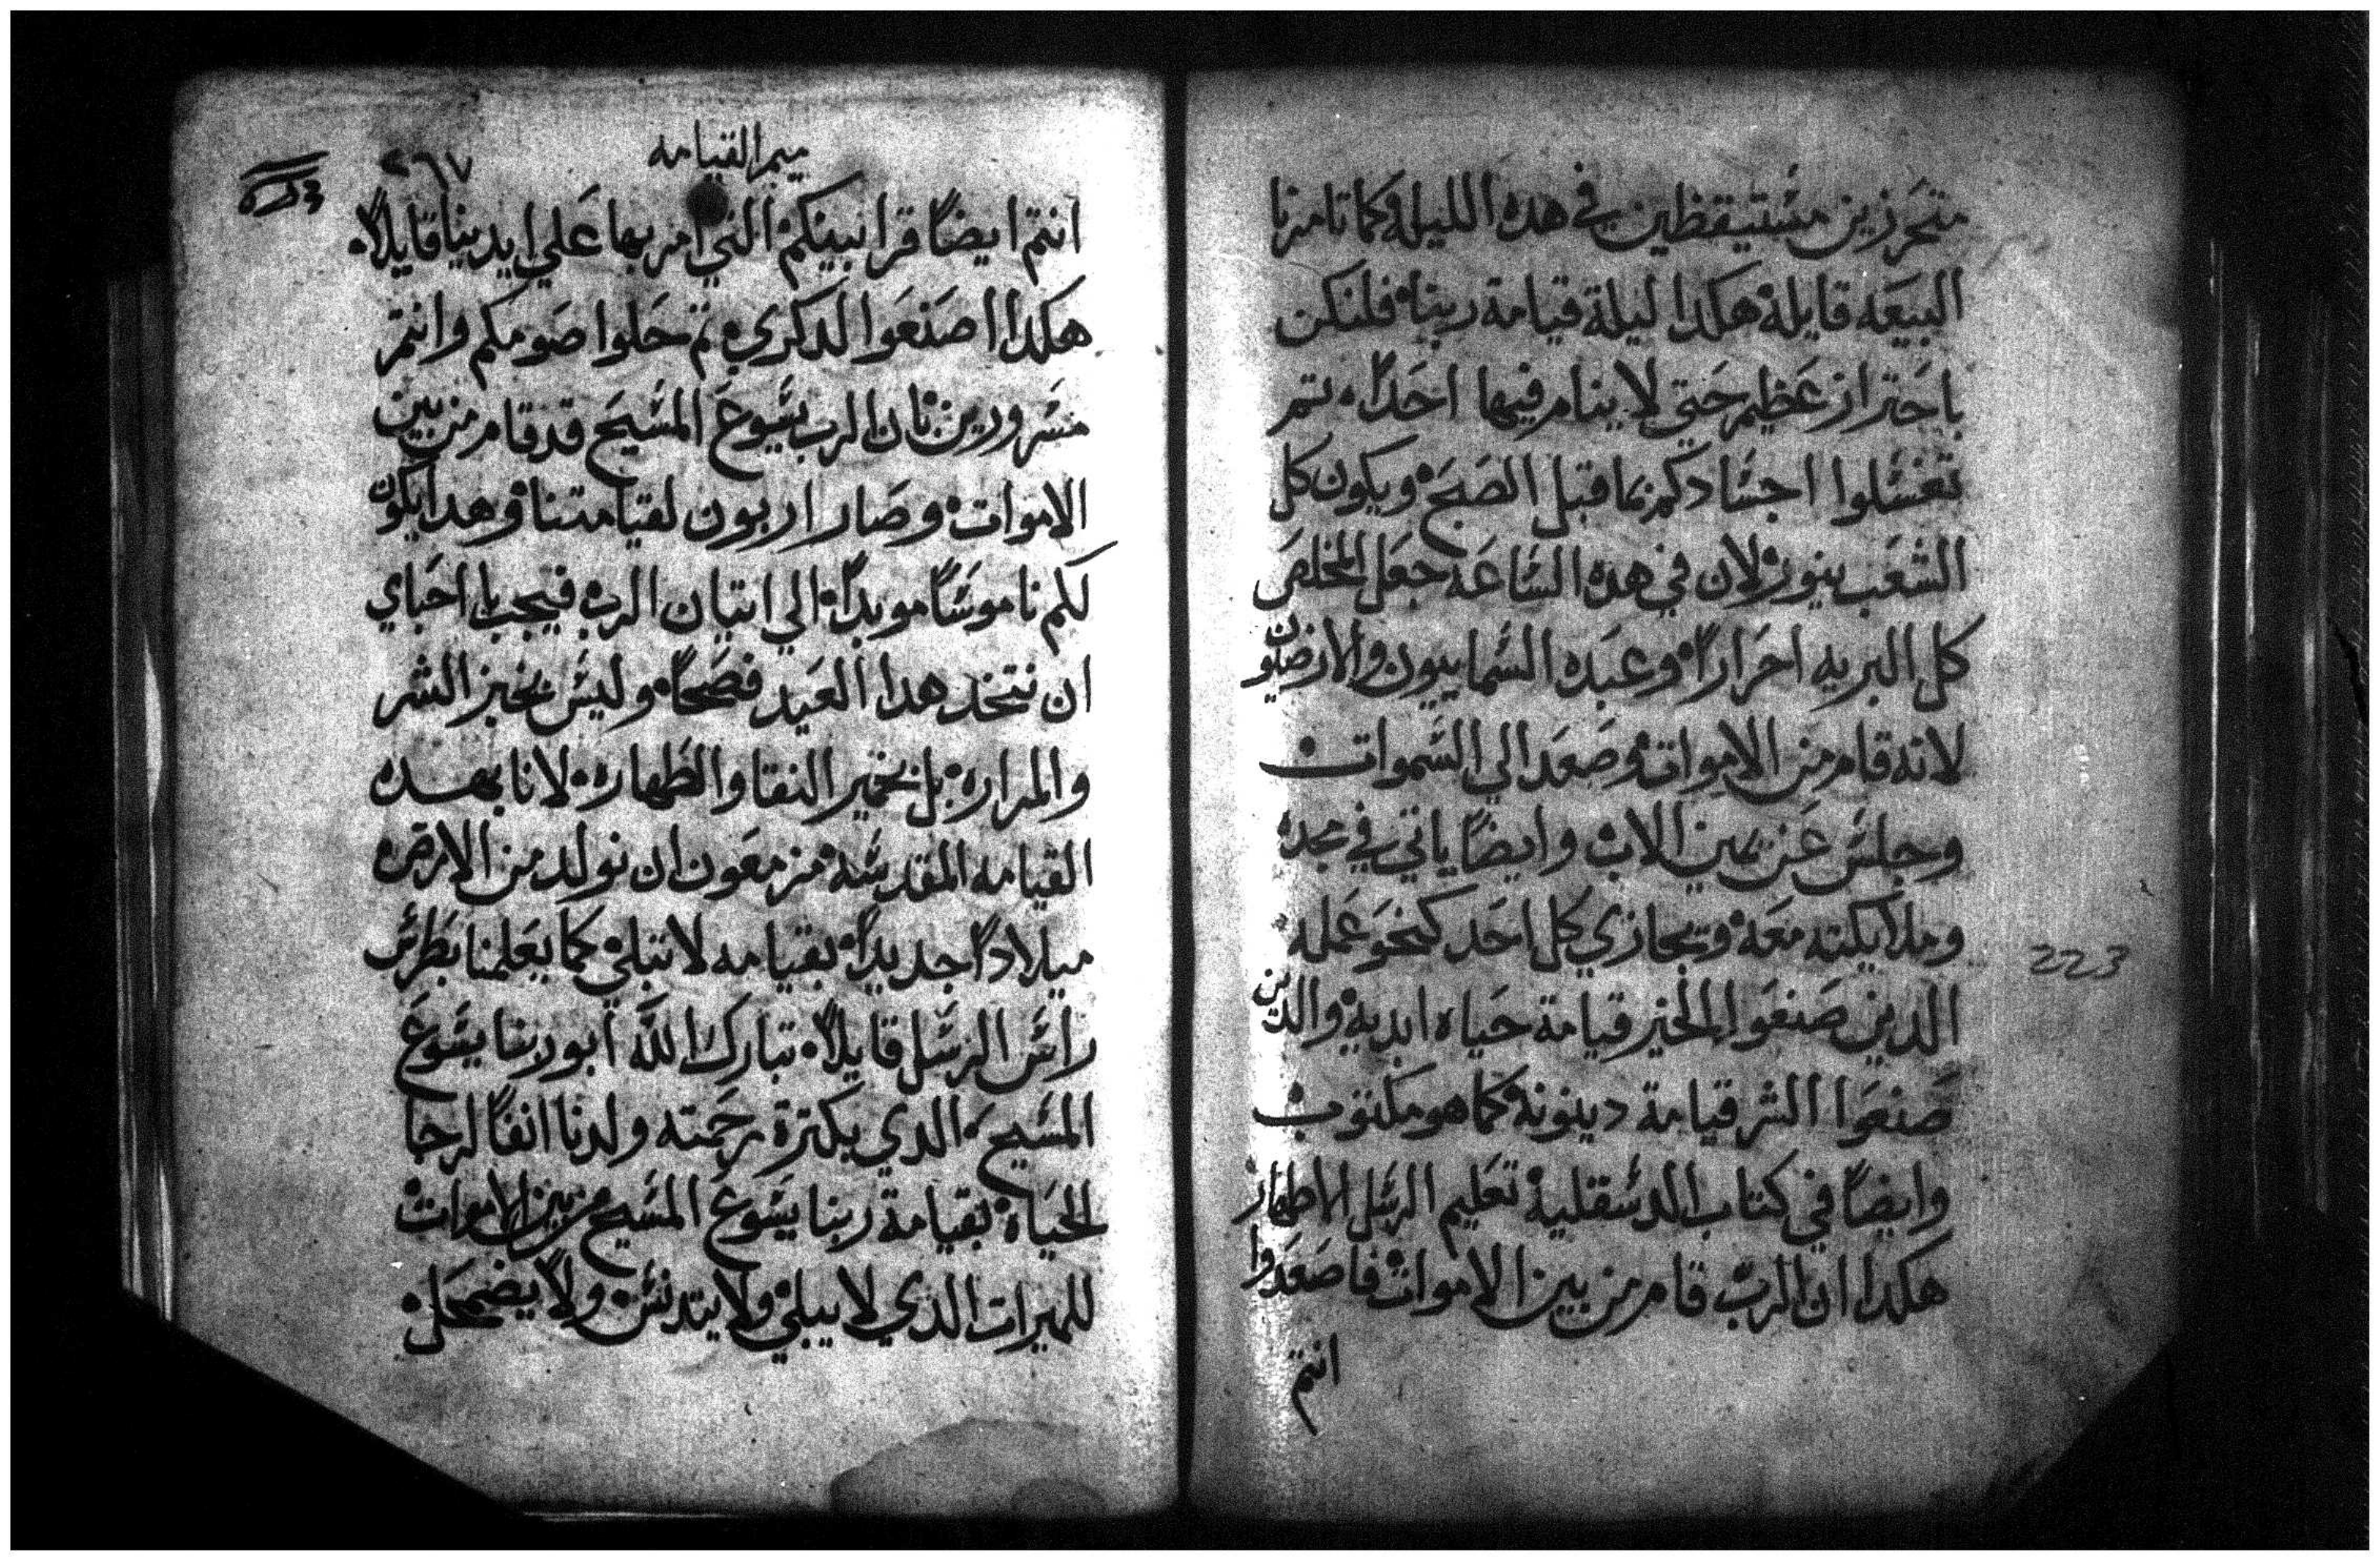 متحرزين مستيقظين في هده الليله وكما تامرنا
البيعه قايلة هكدا ليلة قيامة ربنا فلنكن
باحتراز عظيم حتي لا ينام فيها احداً تم
تغسلوا اجسادكم بما قبل الصبح ويكون كل
الشعب بنور لان في هده الساعه جعل المخلص
كل البريه احراراً وعبده السماييون والارضيون
لانه قام من الاموات وصعد الي السموات
وجلس عن يمين الاب وايضاً ياتي في مجده
وملايكته معه ويجازي كل احد كنحو عمله
الدين صنعوا الخير قيامة حياه ابديه والدين
صنعوا الشر قيامة دينونه كما هو مكتوب
وايضاً في كتاب الدسقلية تعليم الرسل الاطهار
هكدا ان الرب قام من بين الاموات فاصعدوا
انتم
223
ميمر القيامه
٢٦٧
انتم ايضاً قرابينكم التي امر بها علي ايدينا قايلاً
هكدا اصنعوا لدكري تم حلوا صومكم وانتم
مسرورين فان الرب يسوع المسيح قد قام من بين
الاموات وصار اربون لقيامتنا وهدا يكون
لكم ناموساً موبداً الي اتيان الرب فيجب يا احباي
ان نتخد هدا العيد فصحاً وليس بخبز الشر
والمراره بل بخمير النقا والطهاره لانا بهده
القيامه المقدسه مزمعون ان نولد من الارض
ميلاداً جديداً بقيامه لا تبلي كما يعلمنا بطرس
راس الرسل قايلاً تبارك الله ابو ربنا يسوع
المسيح الدي بكترة رحمته ولدنا انفاً لرجا
الحياه بقيامة ربنا يسوع المسيح من بين الاموات
للميرات الدي لا يبلي ولا يتدنس ولا يضمحل